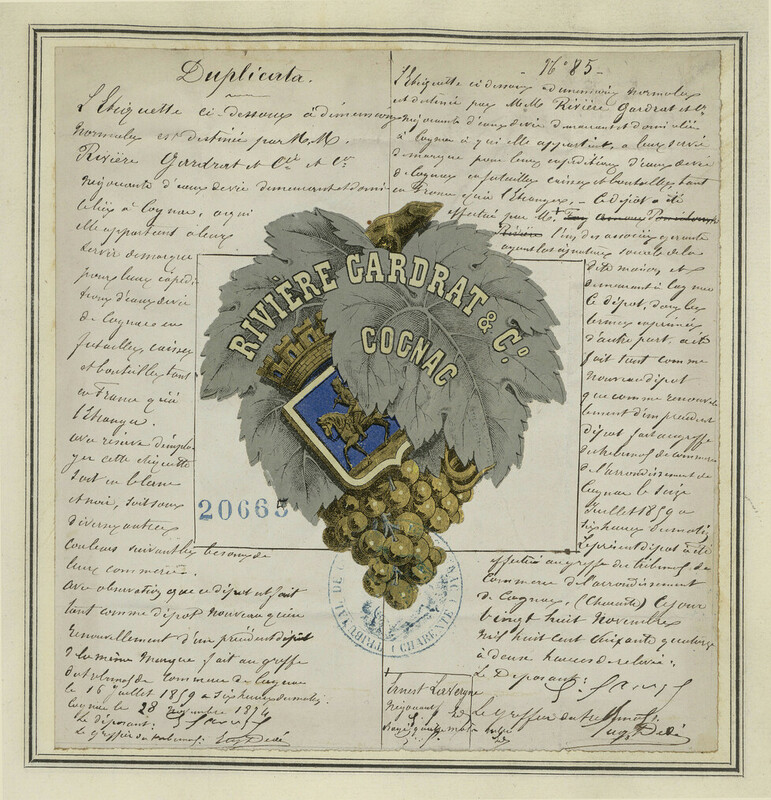 Duplicata.
L'Etiquette ci-dessous à dimensions
normales est destinée par M.M.
Rivière Gardrat et Cie et Cie
négociants d'eaux de vie demeurant et domi
ciliés à Cognac, à qui
elle appartient à leur
servir de marque
pour leurs expédi
tions d'eaux de vie
de Cognac en
futailles caisses
et bouteilles tant
en France qu'à
l'Etranger.
avec réserve d'emplo
yer cette étiquette
soit en blanc
et noir, soit sous
diverses autres
couleurs suivant les besoins de
leur commerce.
Avec observation que ce dépôt est fait
tant comme dépôt nouveau qu'en
renouvellement d'un précédent dépôt
de la même Marque fait au greffe
du tribunal de Commerce de Cognac
le 16 juillet 1859 à six heures du matin.
Cognac le 28 novembre 1874
Le déposant:
Le greffier du tribunal:
- No 85 -
L'Etiquette ci-dessous à dimensions normales
est destinée par M.M. Rivière Gardrat et Cie
négociants d'eaux de vie demeurant et domiciliés
à Cognac à qui elle appartient, à leur servir
de marque pour leurs expéditions d'eaux de vie
de Cognac en futailles caisses et bouteilles, tant
en France qu'à l'Etranger. - Ce dépôt a été
effectué par Mr
Rivière l'un des associés gérants
ayant la signature sociale de la
dite maison, et
demeurant à Cognac
Ce dépôt, dans les
termes exprimés
d'autre part, a été
fait tant comme
nouveau dépôt
que comme renouvel
lement d'un précédent
dépôt fait au greffe
du tribunal de commerce
de l'arrondissement de
Cognac le seize
Juillet 1859 à
six heures du matin,
le présent dépôt a été
effectué au greffe du tribunal de
Commerce de l'arrondissement
de Cognac, (Charente) ce jour
vingt huit Novembre
mil huit cent soixante quatorze
à deux heures de relevée.
Le Déposant:
Le greffier du tribunal:
RIVIÈRE GARDRAT & Co
COGNAC
20665
TRIBUNAL DE
CHARENTE
Ernest Lavergne
Négociant